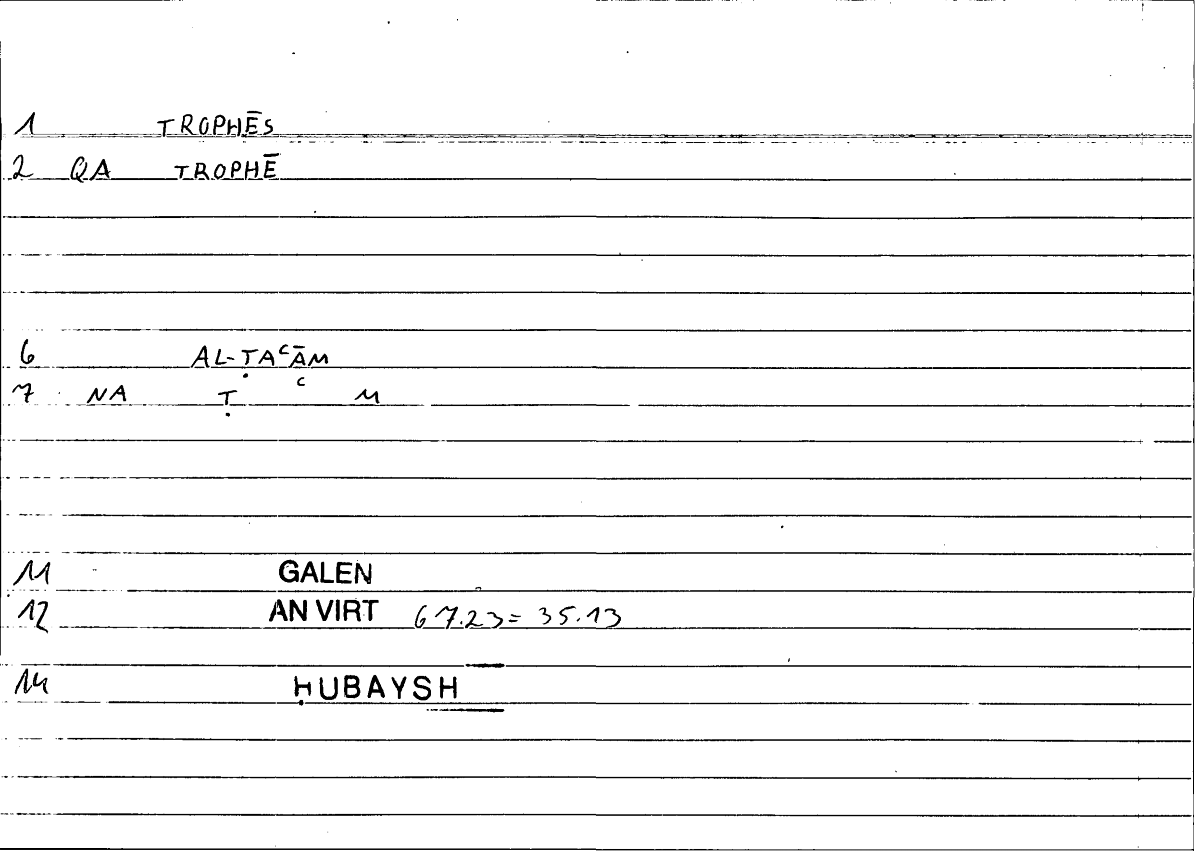 1 TROPHĒS
2 QA TROPHĒ
6 AL-ṬAʿĀM
7 NA Ṭ ʿ M
11 GALEN
12 AN VIRT 67.23= 35.13
14 ḤUBAYSH